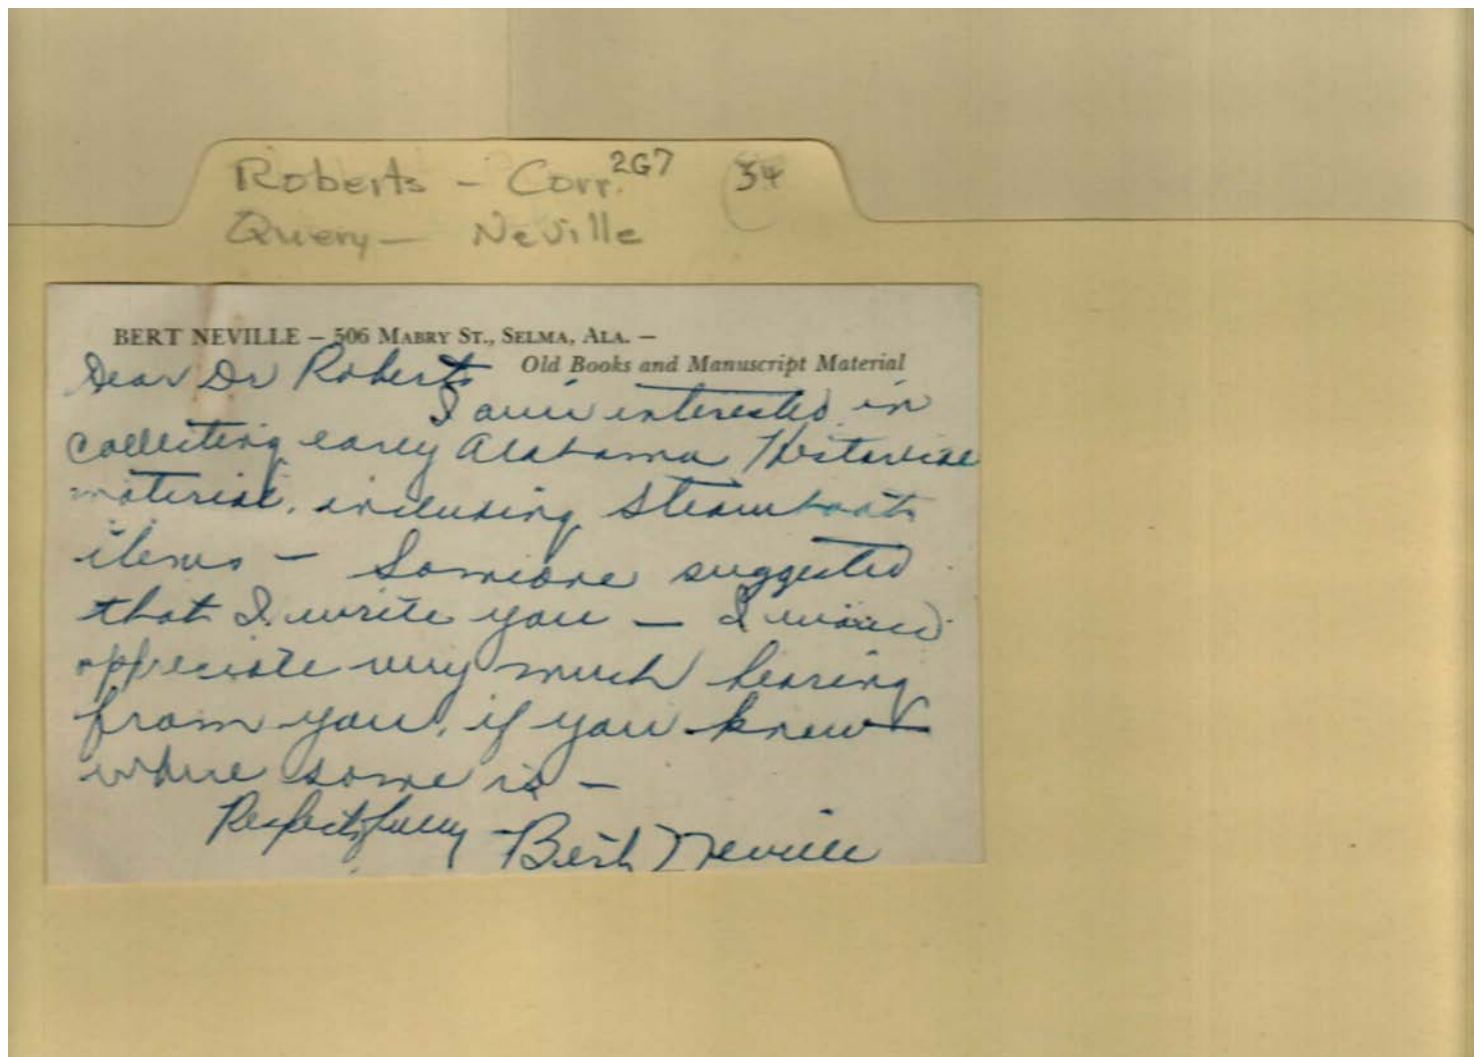 Roberts - Corr. 2G7 34
Query - Neville
BERT NEVILLE – 506 MABRY ST., SELMA, ALA. –
Old Books and Manuscript Material
Dear Dr Roberts
I am interested in
collecting early Alabama Historical
material, including Steamboat
items - Someone suggested
that I write you - I would
appreciate very much hearing
from you, if you know
where some is -
Respectfully - Bert Neville